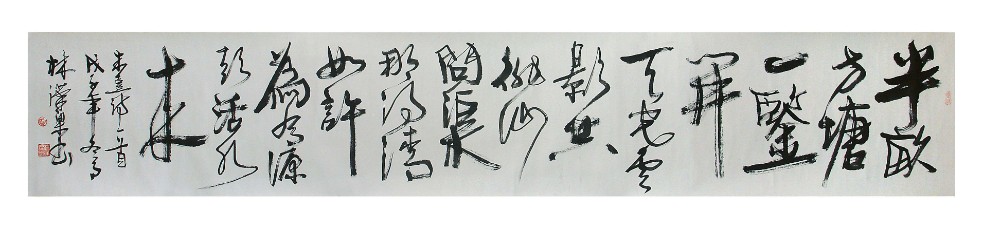 半畝
方塘
一鑒
開
天光雲
影共
徘徊
問渠
那得清
如許
為有源
頭活水
來
朱熹詩一首
戊子年冬月
林